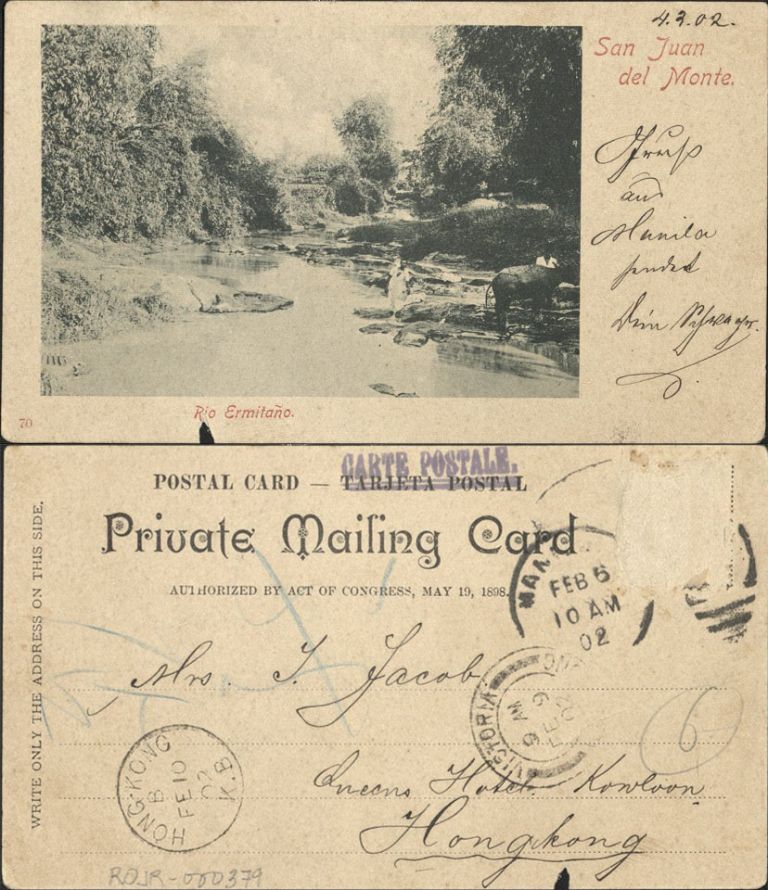 4.2.02.
San Juan
del Monte.
Gruß
aus
Manila
sendet
Dein Schwager.
70
Rio Ermitaño.
CARTE POSTALE.
POSTAL CARD — TARJETA POSTAL
Private Mailing Card
AUTHORIZED BY ACT OF CONGRESS, MAY 19, 1898.
WRITE ONLY THE ADDRESS ON THIS SIDE.
FEB 6
10 AM
02
Mrs. I. Jacob
VICTORIA
9 AM
FE 9
02
6
HONG-KONG
B
FE 10
02
K.B
Queens Hotel Kowloon
Hongkong
ROJR-000379